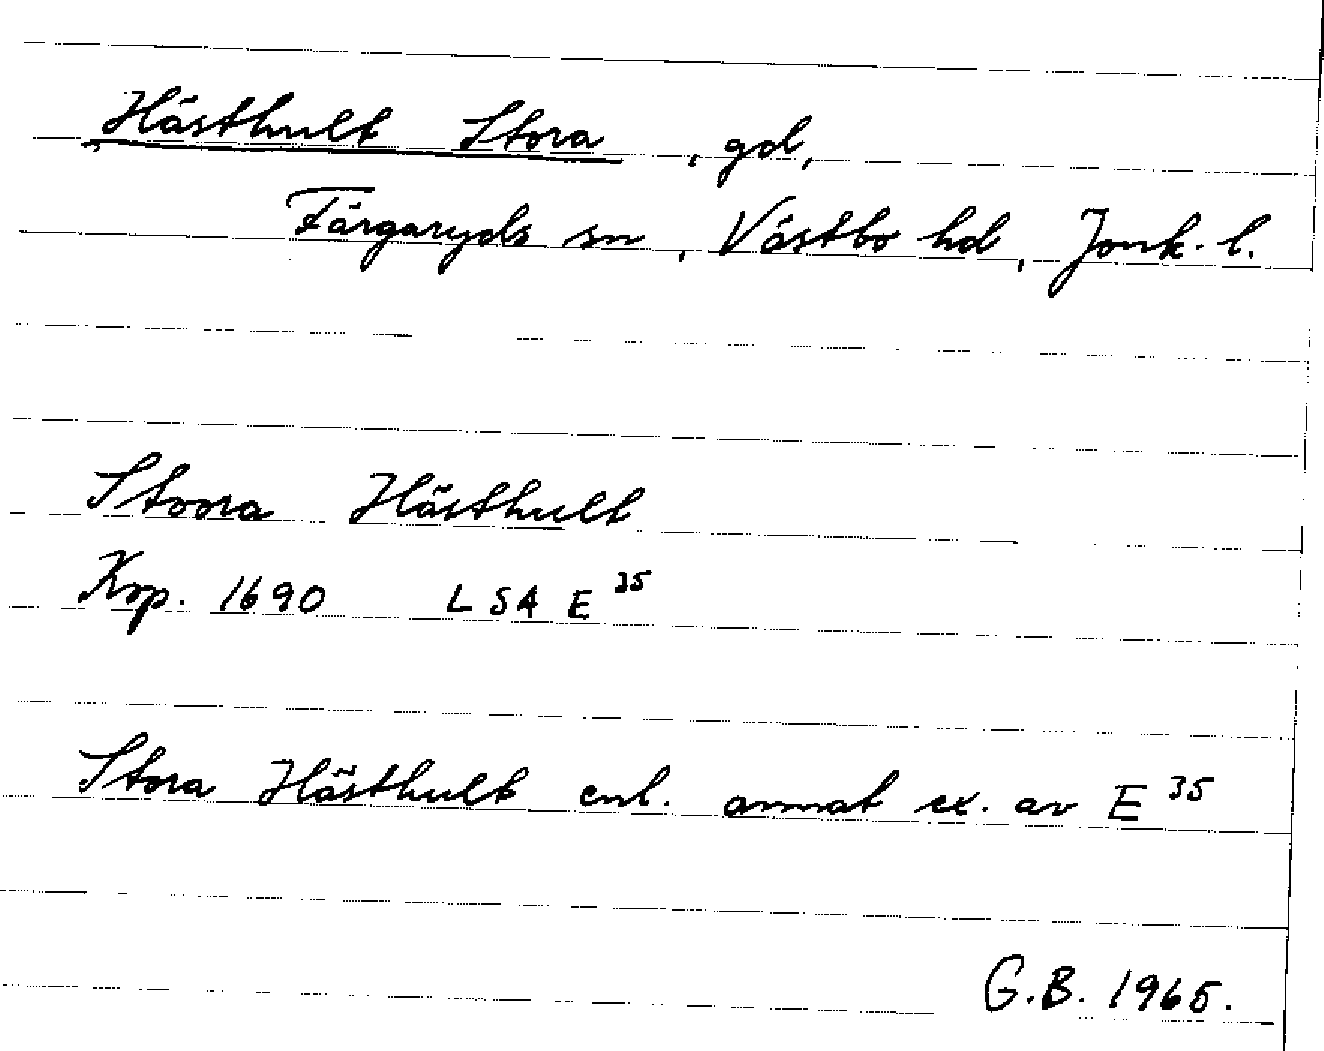 Hästhult Stora, gd,
Färgaryds sn, Västbo hd, Jönk. l.
Stoora Hästhult
Krp. 1690 LSA E 35
Stora Hästhult enl. annat ex. av E 35
G.B. 1965.